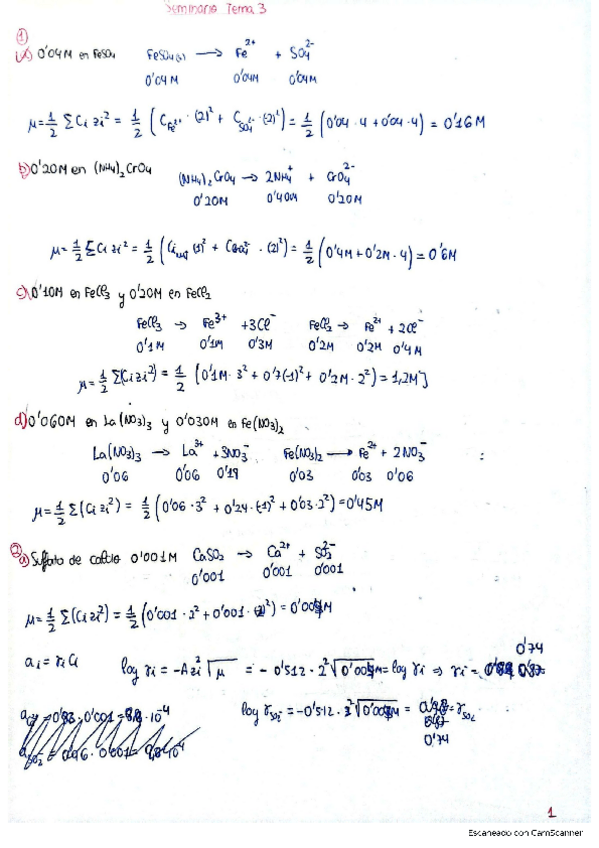 Seminario Tema 3
①
a) 0'04M en FeSO₄ FeSO₄(s) → Fe²⁺ + SO₄²⁻
0'04M 0'04M 0'04M
μ = 1/2 Σ Ci zi² = 1/2 (C Fe²⁺ · (2)² + C SO₄²⁻ · (2)²) = 1/2 (0'04 · 4 + 0'04 · 4) = 0'16M
b) 0'20M en (NH₄)₂CrO₄ (NH₄)₂CrO₄ → 2NH₄⁺ + CrO₄²⁻
0'20M 0'40M 0'20M
μ = 1/2 Σ Ci zi² = 1/2 ( (1)² + · (2)²) = 1/2 (0'4M + 0'2M · 4) = 0'6M
c) 0'10M en FeCl₃ y 0'20M en FeCl₂
FeCl₃ → Fe³⁺ + 3Cl⁻ FeCl₂ → Fe²⁺ + 2Cl⁻
0'1M 0'1M 0'3M 0'2M 0'2M 0'4M
μ = 1/2 Σ(Ci zi²) = 1/2 (0'1M · 3² + 0'7(-1)² + 0'2M · 2²) = 1,2M
d) 0'060M en La(NO₃)₃ y 0'030M en Fe(NO₃)₂
La(NO₃)₃ → La³⁺ + 3NO₃⁻ Fe(NO₃)₂ → Fe²⁺ + 2NO₃⁻
0'06 0'06 0'03 0'03 0'06
μ = 1/2 Σ(Ci zi²) = 1/2 (0'06 · 3² + 0'24 · (-1)² + 0'03 · 2²) = 0'45M
②
a) Sulfato de calcio 0'001M CaSO₂ → Ca²⁺ + SO₂²⁻
0'001 0'001 0'001
μ = 1/2 Σ(Ci zi²) = 1/2 (0'001 · 2² + 0'001 · (2)²) = M
0'74
ai = γi Ci log γi = -A zi² √μ = -0'512 · 2² = log γi ⇒ γi =
log γ = -0'512 · =
0'74
1
Escaneado con CamScanner